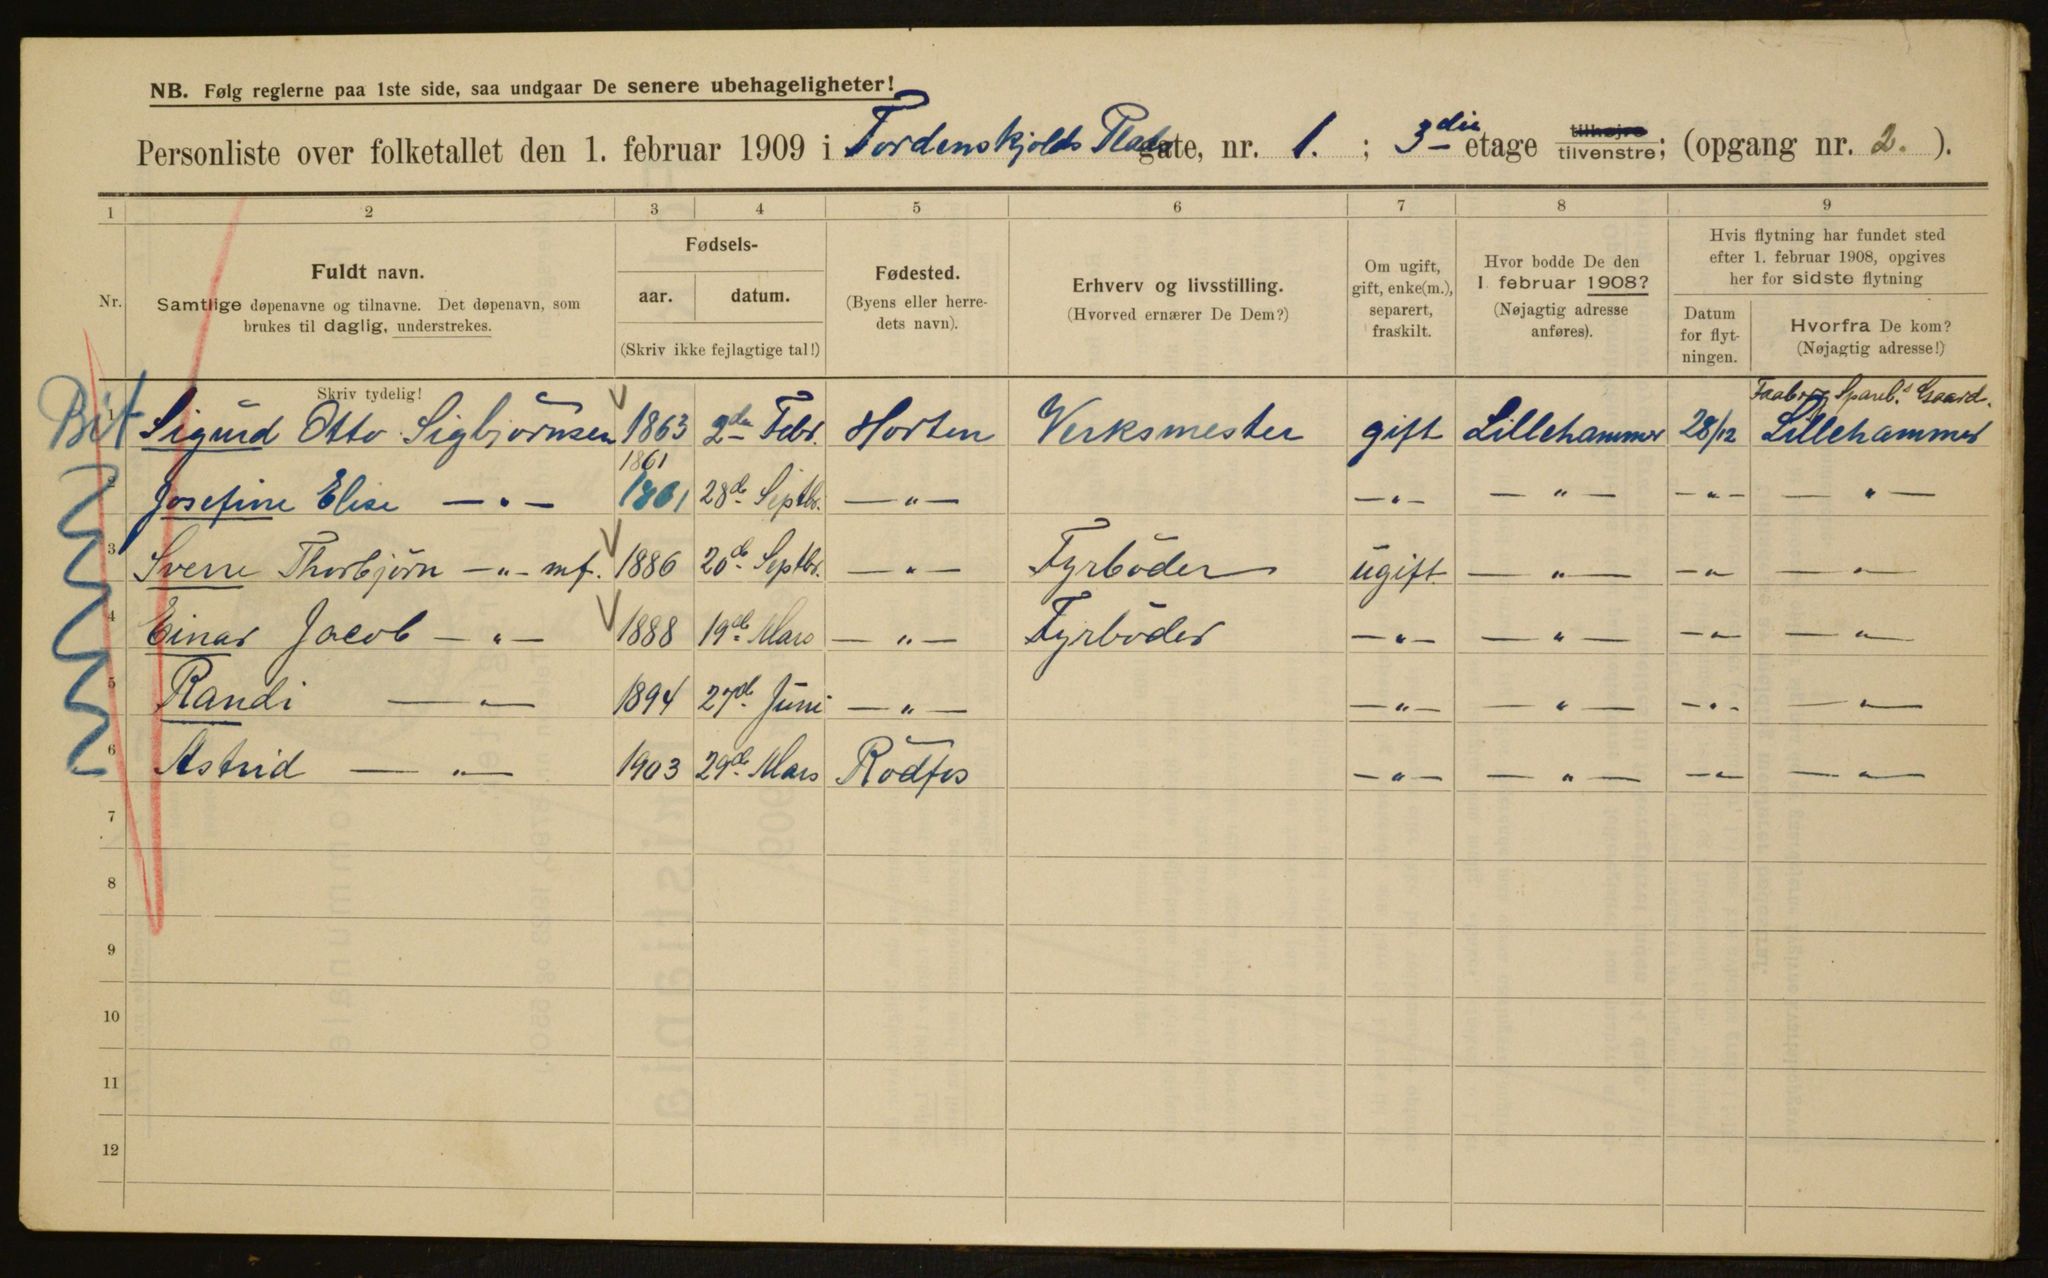 NB. Følg reglerne paa 1ste side, saa undgaar De senere ubehageligheter!
Personliste over folketallet den 1. februar 1909 i Tordenskjolds Plads gate, nr. 1. ; 3die etage tilhøjre tilvenstre; (opgang nr. 2. ).
1 2 3 4 5 6 7 8 9
Nr.
Fuldt navn.
Samtlige døpenavne og tilnavne. Det døpenavn, som
brukes til daglig, understrekes.
Skriv tydelig!
Fødsels-
aar. datum.
(Skriv ikke fejlagtige tal!)
Fødested.
(Byens eller herre-
dets navn).
Erhverv og livsstilling.
(Hvorved ernærer De Dem?)
Om ugift,
gift, enke(m.),
separert,
fraskilt.
Hvor bodde De den
1 februar 1908?
(Nøjagtig adresse
anføres).
Hvis flytning har fundet sted
efter 1. februar 1908, opgives
her for sidste flytning
Datum
for flyt-
ningen.
Hvorfra De kom?
(Nøjagtig adresse!)
Faaberg Spareb.s Gaard.
1 Sigurd Otto Sigbjørnsen 1863 2den Febr. Horten Verksmester gift Lillehammer 28/12 Lillehammer
1861
2 Josefine Elise — " — 1861 28de Septbr. — " — — " — — " — — " — — " —
3 Sverre Thorbjørn — " — mf. 1886 20de Septbr. — " — Fyrbøder ugift — " — — " — — " —
4 Einar Jacob — " — 1888 19de Mars — " — Fyrbøder — " — — " — — " — — " —
5 Randi — " — 1894 27de Juni — " — — " — — " — — " — — " —
6 Astrid — " — 1903 29de Mars Rødfos — " — — " — — " — — " —
7
8
9
10
11
12